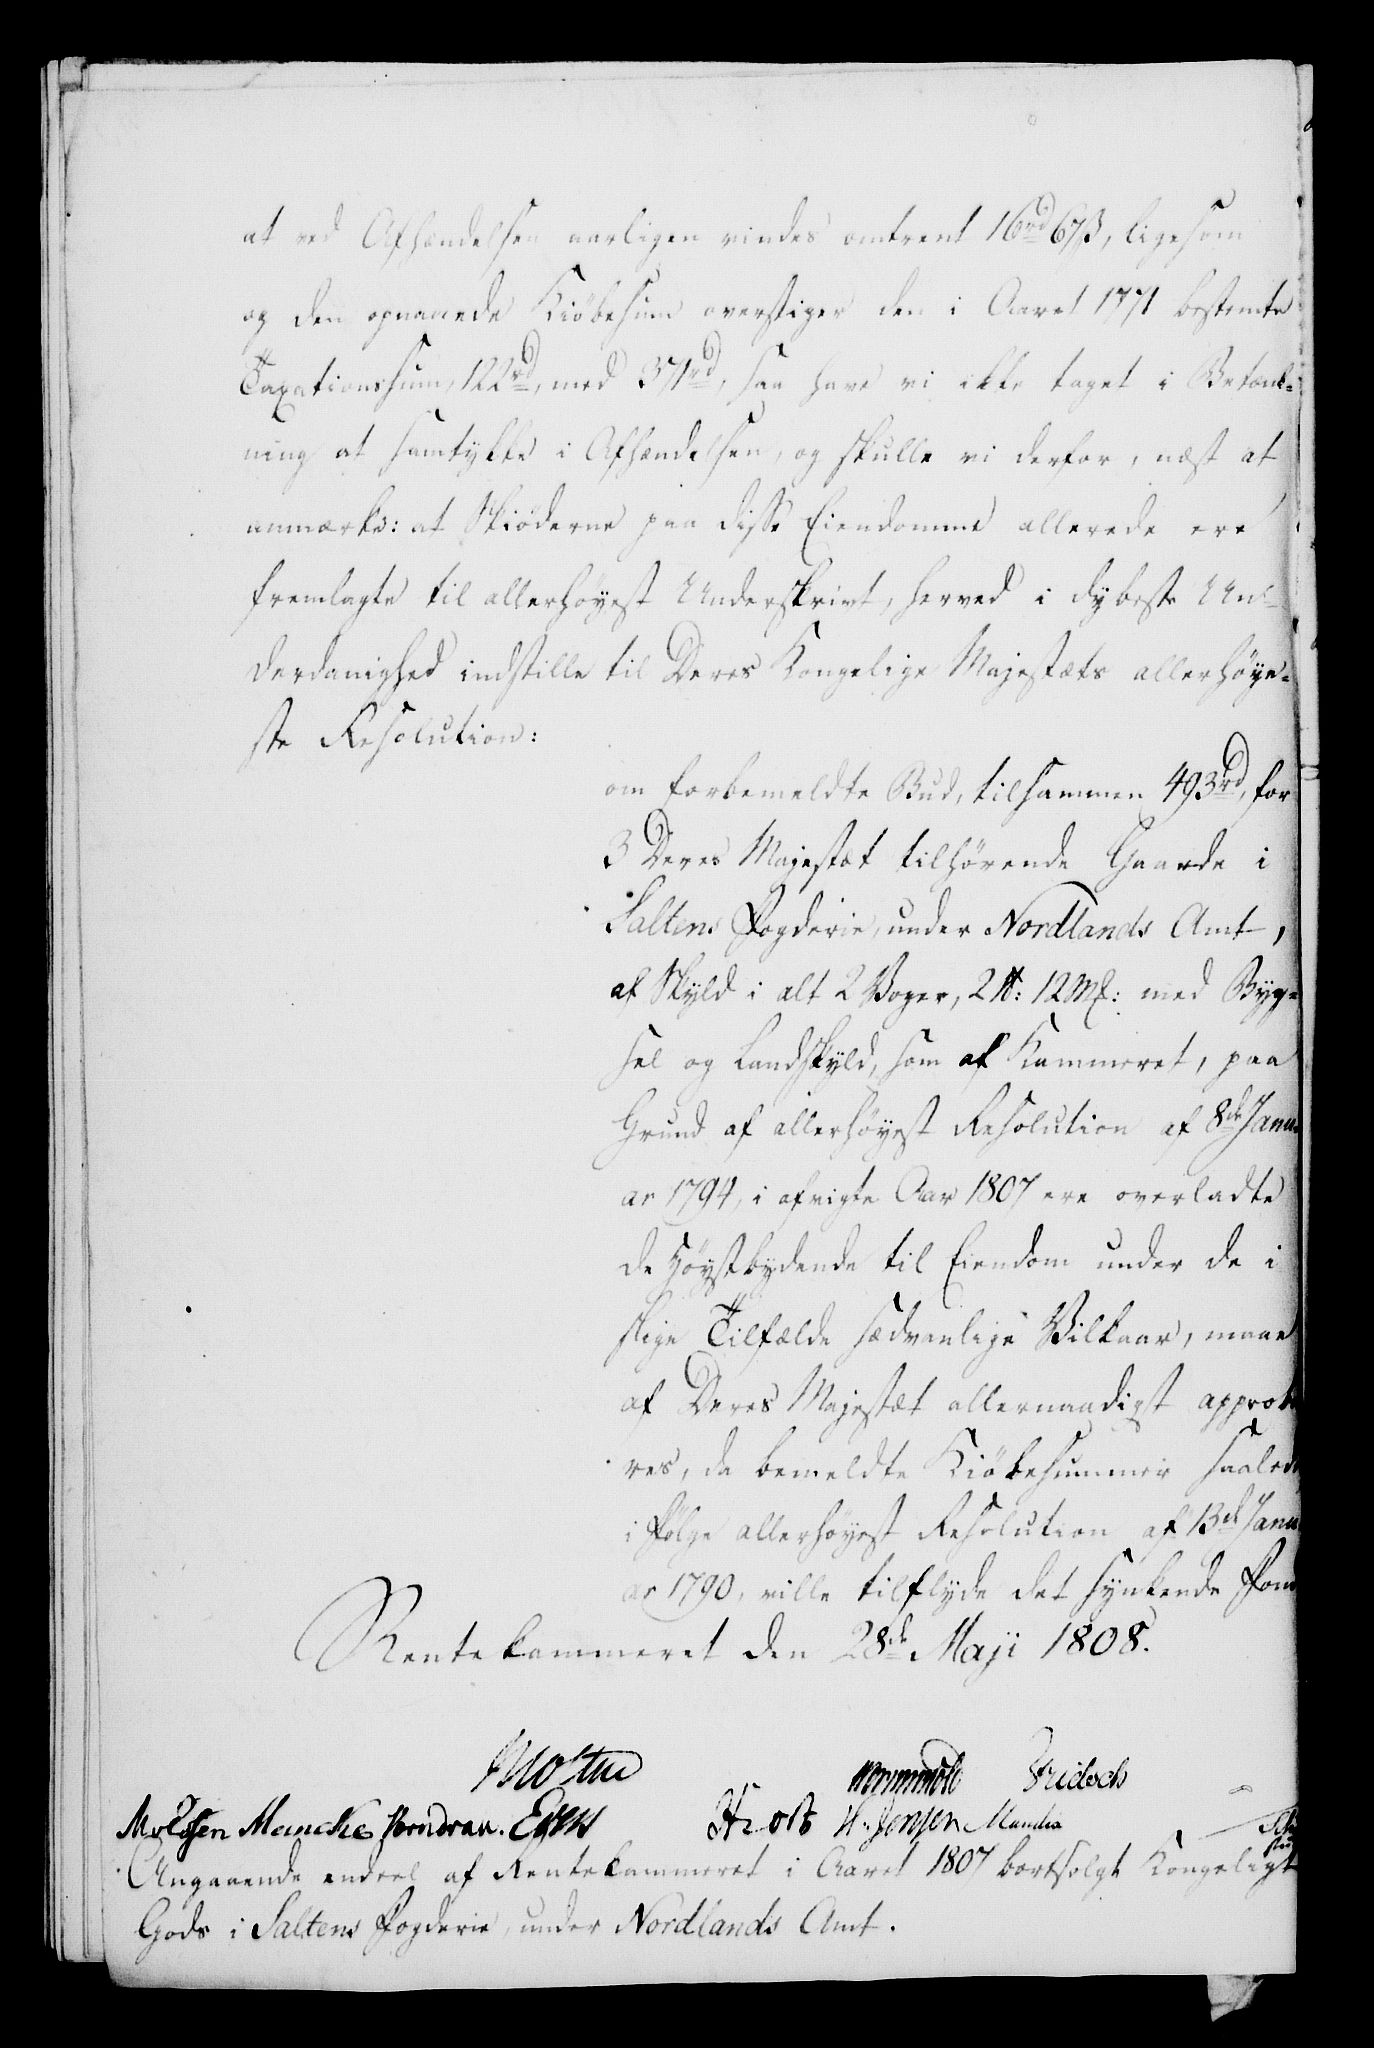 at ved Afhændelsen aarligen vindes omtrent 16rd 67ß, ligesom
og den opnaaede Kiöbesum overstiger den i Aaret 1771 bestemte
Taxationssum, 122rd, med 371rd, saa have vi ikke taget i Betænk-
ning at samtykke i Afhændelsen, og skulle vi derfor, næst at
anmærke: at Skiöderne paa disse Eiendomme allerede ere
fremlagte til allerhöyest Underskrivt, herved i dybeste Un-
derdanighed indstille til Deres Kongelige Majestæts allerhöye-
ste Resolution:
om forbemeldte Bud, tilsammen 493rd, for
3 Deres Majestæt tilhörende Gaarde i
Saltens Fogderie, under Nordlands Amt,
af Skyld i alt 2 Voger, 2 ℔: 12 Mk: med Byg-
sel og Landskyld, som af Kammeret, paa
Grund af allerhöyest Resolution af 8de Janu-
ar 1794, i afvigte Aar 1807 ere overladte
de Höystbydende til Eiendom under de i
slige Tilfælde sædvanlige Vilkaar, maae
af Deres Majestæt allernaadigst approbe
res, da bemeldte Kiöbesummer saalede
i Fölge allerhöyest Resolution af 13de Janu
ar 1790, ville tilflyde det synkende Fon
Rentekammeret den 28de Maji 1808.
Moltke Wormskiold Fridsch
Monrad
Angaaende endeel af Rentekammeret i Aaret 1807 bortsolgt Kongeligt
Gods i Saltens Fogderie, under Nordlands Amt.